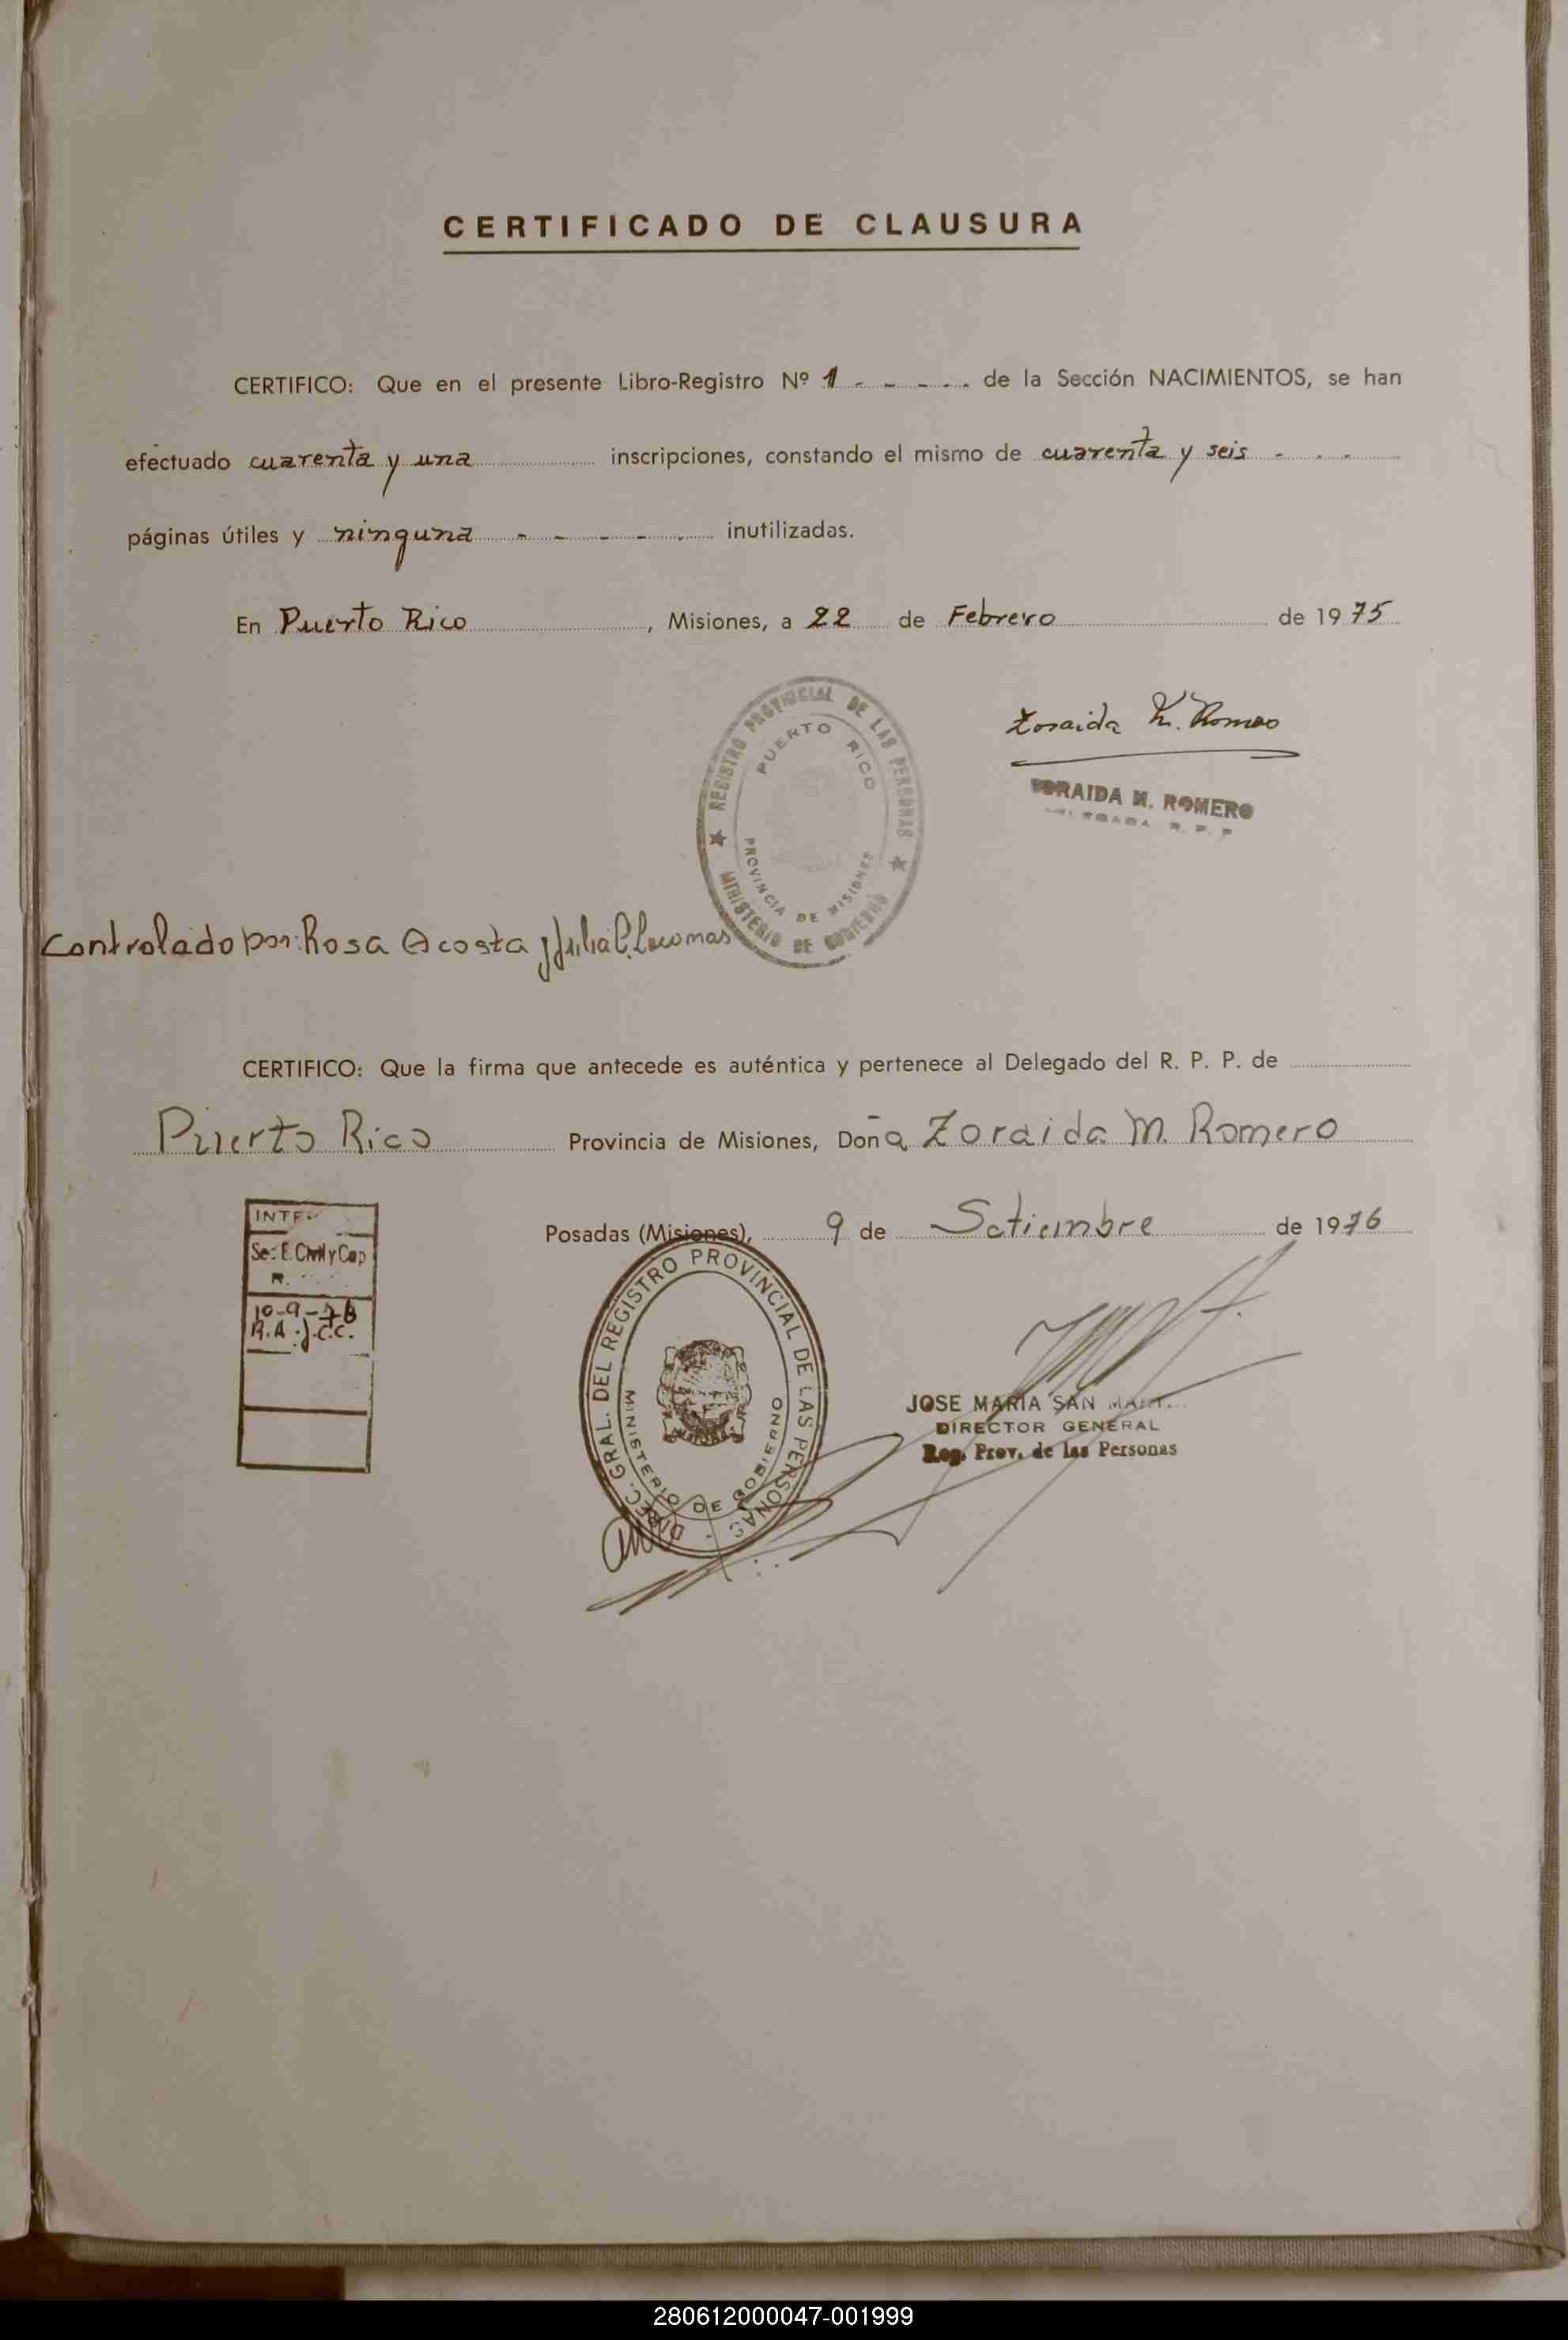 CERTIFICADO DE CLAUSURA
CERTIFICO: Que en el presente Libro-Registro Nº 1 - - - - - de la Sección NACIMIENTOS, se han
efectuado cuarenta y una inscripciones, constando el mismo de cuarenta y seis - - -
páginas útiles y ninguna - - - - - inutilizadas.
En Puerto Rico, Misiones, a 22 de Febrero de 1975
REGISTRO PROVINCIAL DE LAS PERSONAS
PUERTO RICO
PROVINCIA DE MISIONES
MINISTERIO DE GOBIERNO
Zoraida M. Romero
ZORAIDA M. ROMERO
DELEGADA R. P. P.
Controlado por: Rosa Acosta y Julia
CERTIFICO: Que la firma que antecede es auténtica y pertenece al Delegado del R. P. P. de
Puerto Rico Provincia de Misiones, Doña Zoraida M. Romero
Posadas (Misiones), 9 de Setiembre de 1976
Se: E. Civil y Cap
R.
10-9-76
R.A. J.C.C.
DIREC. GRAL. DEL REGISTRO PROVINCIAL DE LAS PERSONAS -
MINISTERIO DE GOBIERNO
JOSE MARIA SAN
DIRECTOR GENERAL
Reg. Prov. de las Personas
280612000047-001999